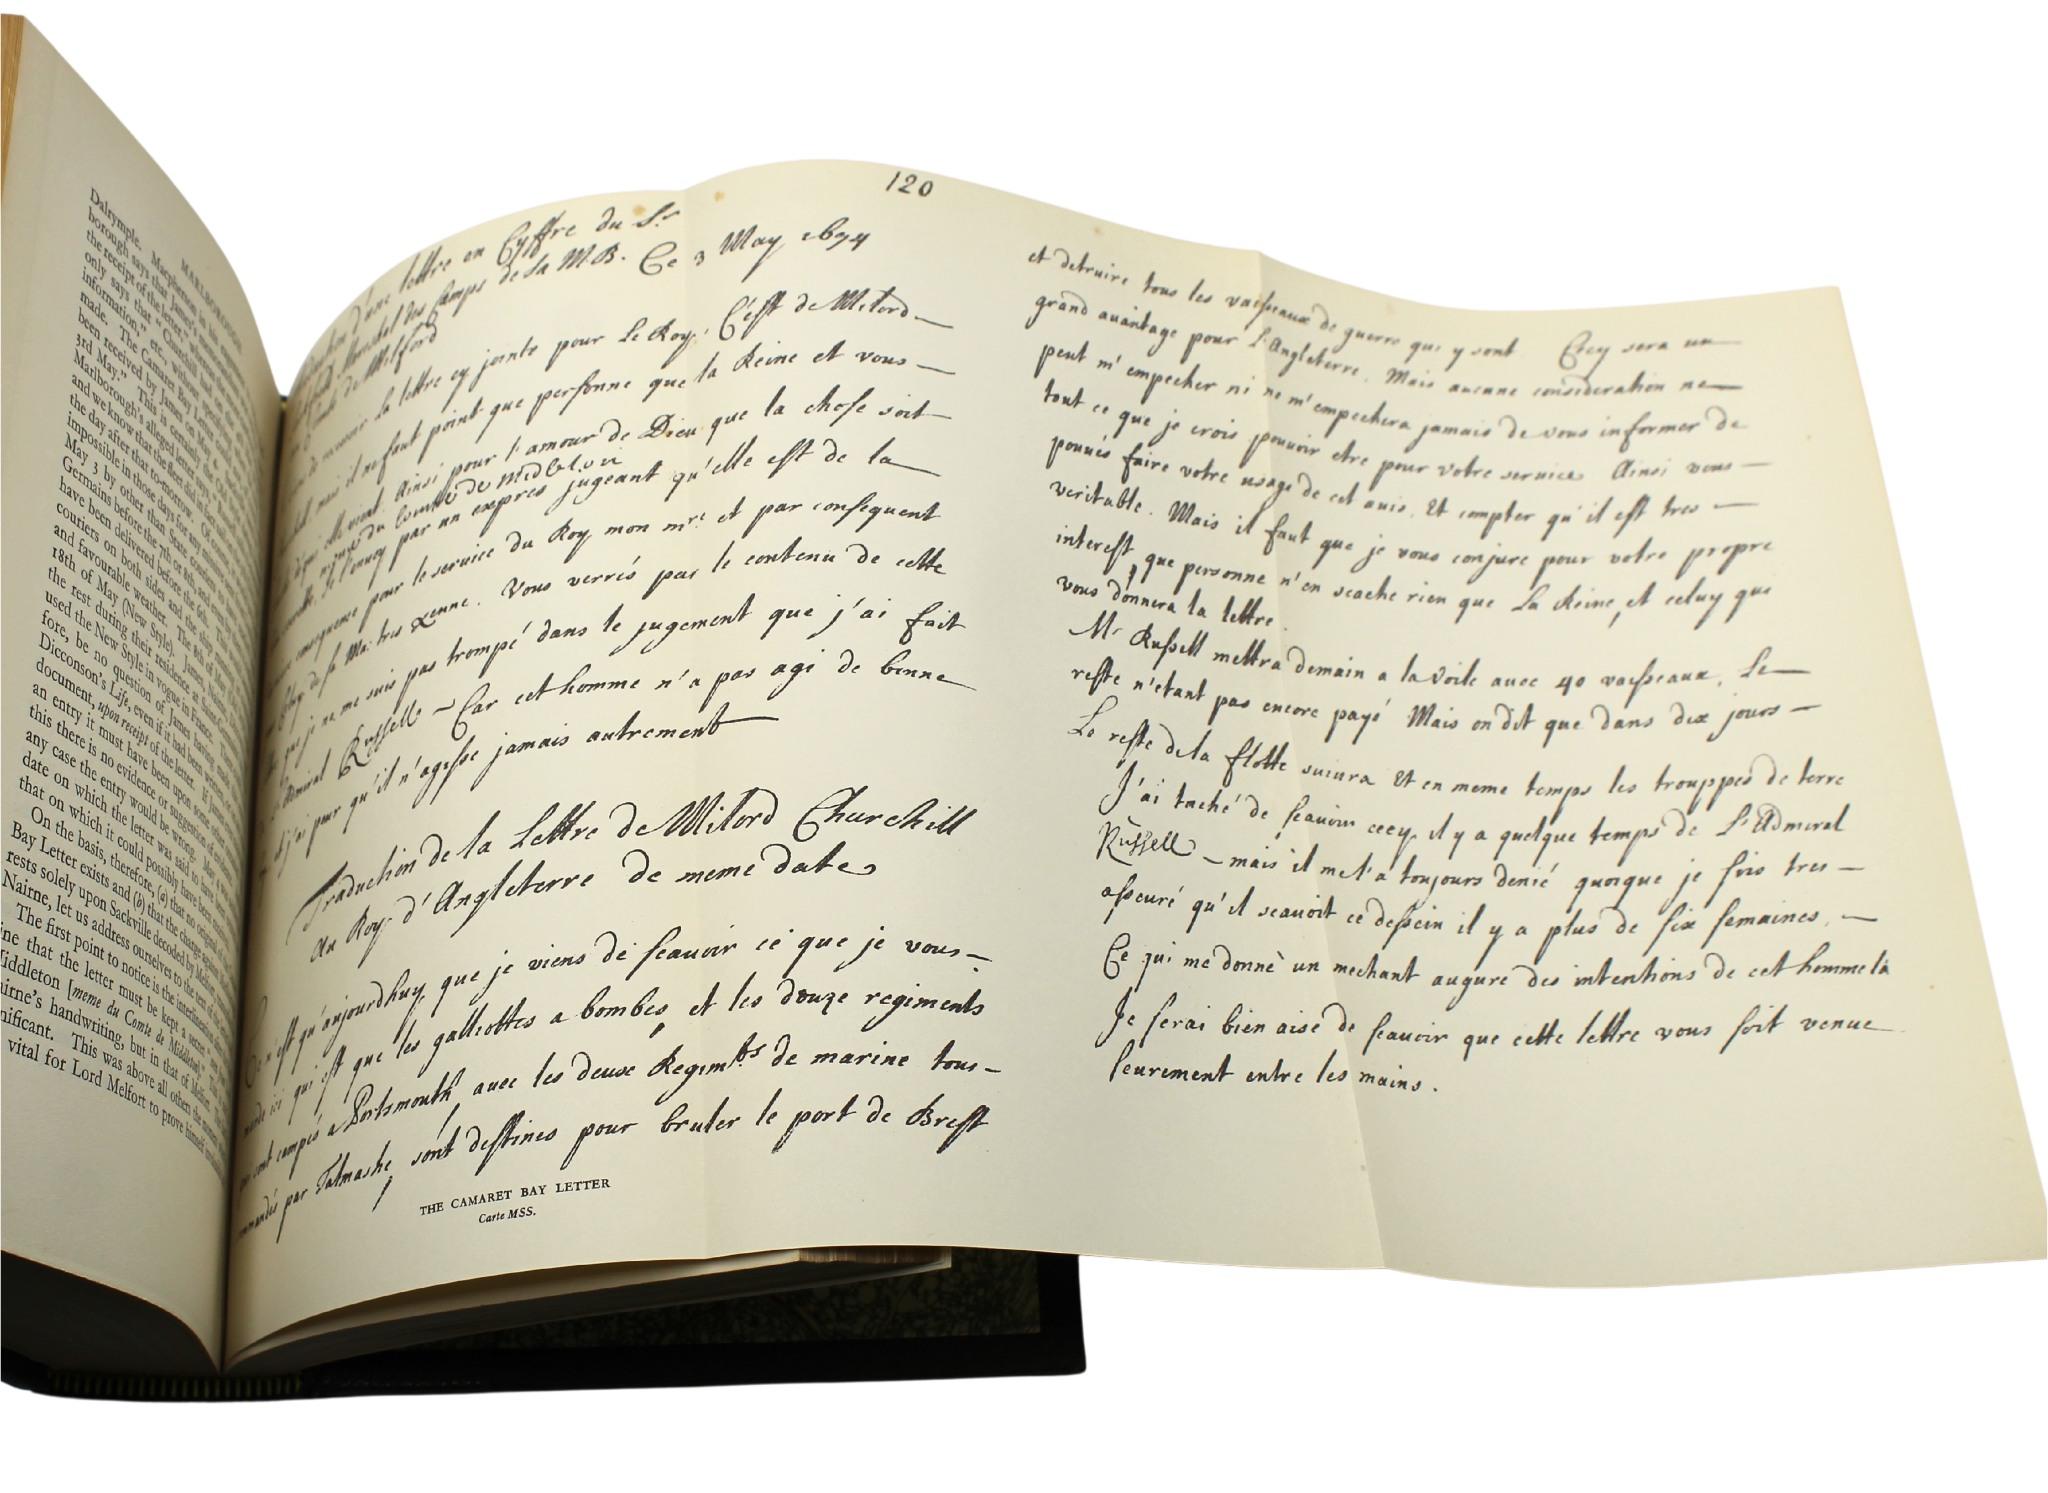 MARLBOROUGH
Dalrymple. Macpherson in his
borough says that James's
the receipt of the letter, whereas the
only says that "Churchill had on the
information," etc., without specifying
made. The Camaret Bay Letter could
been received by James on May 4, Old
3rd May." This is certainly the date
Marlborough's alleged letter says, "Russell
and we know that the fleet did in fact
the day after that to-morrow. Of course
impossible in those days for any
May 3 by other than State couriers to
Germains before the 7th or 8th, and even
have been delivered before the 6th. This
couriers on both sides and the ship
and favourable weather. The 8th of May
18th of May (New Style). James, Nairne,
the rest during their residence at Saint-Germains
used the New Style in vogue in France. There
fore, be no question of James having made
Dicconson's Life, even if it had been written, or
document, upon receipt of the letter. If James
an entry it must have been upon some other
this there is no evidence or suggestion of
any case the entry would be wrong. May 4 was
date on which the letter was said to have been
that on which it could possibly have been
On the basis, therefore, (a) that no original of the
Bay Letter exists and (b) that the charge against
rests solely upon Sackville decoded by Melfort,
Nairne, let us address ourselves to the text of the
The first point to notice is the interlineation
ine that the letter must be kept a secret
Middleton [meme du Comte de Middleton]. This
airne's handwriting, but in that of Melfort. The
nificant. This was above all others the
vital for Lord Melfort to prove himself
d'une lettre en Cyffre du Sr
Mareschal des Camps de Sa M B. Ce 3 May 1694
de Melford
de recevoir la lettre cy jointe pour Le Roy. C'est de Milord
mais il ne faut point que personne que la Reine et vous
elle vient. Ainsi pour l'amour de Dieu que la chose soit
du Comte de Midleton
Je l'envoy par un expres jugeant qu'elle est de la
consequence pour le service du Roy mon mre et par consequent
de sa Ma: tres Xenne. Vous verrés par le contenu de cette
que je ne me suis pas trompé dans le jugement que j'ai fait
Admiral Russelle – Car cet homme n'a pas agi de bonne
et j'ai peur qu'il n'agisse jamais autrement
Traduction de la Lettre de Milord Churchill
Au Roy d'Angleterre de meme date
Ce n'est qu'aujourdhuy que je viens de scavoir ce que je vous
mande ici qui est que les galliottes a bombes, et les douze regiments
qui sont campés a Portsmouth, avec les deux Regimts de marine tous
commandés par Talmashe, sont destinés pour bruler le port de Brest
THE CAMARET BAY LETTER
Carte MSS.
120
et detruire tous les vaisseaux de guerre qui y sont Cecy sera un
grand avantage pour L'Angleterre. Mais aucune consideration ne
peut m'empecher ni ne m'empechera jamais de vous informer de
tout ce que je crois pouvoir etre pour votre service Ainsi vous
pouvés faire votre usage de cet avis. Et compter qu'il est tres
veritable. Mais il faut que je vous conjure pour votre propre
interest, que personne n'en scache rien que La Reine, et celuy qui
vous donnera la lettre
Mr Russell mettra demain a la voile avec 40 vaisseaux. Le
reste n'etant pas encore payé Mais on dit que dans dix jours
Le reste de la flotte suivra Et en meme temps les trouppes de terre
J'ai taché de scavoir cecy il y a quelque temps de L'Admiral
Russell – mais il me l'a toujours denié quoique je sois tres
asseuré qu'il scavoit ce dessein il y a plus de six semaines.
Ce qui me donné un mechant augure des intentions de cet homme là
Je serai bien aise de scavoir que cette lettre vous soit venue
seurement entre les mains.